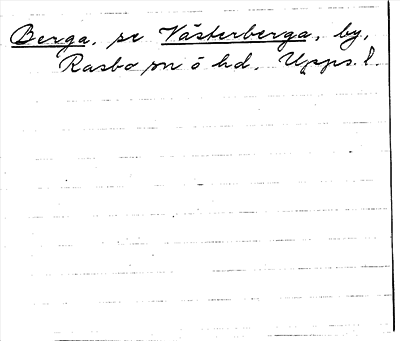 Berga, se Västerberga, by,
Rasbo sn o hd, Upps. l.